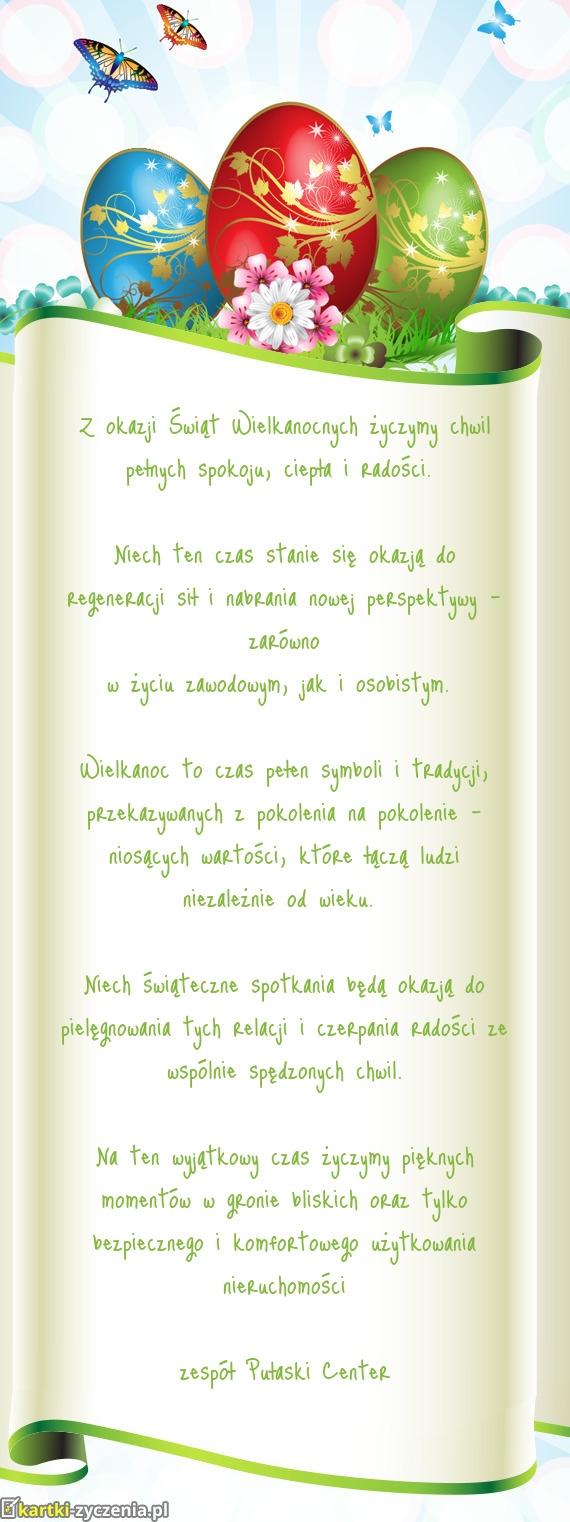 Z okazji Świąt Wielkanocnych życzymy chwil
pełnych spokoju, ciepła i radości.
Niech ten czas stanie się okazją do
regeneracji sił i nabrania nowej perspektywy –
zarówno
w życiu zawodowym, jak i osobistym.
Wielkanoc to czas pełen symboli i tradycji,
przekazywanych z pokolenia na pokolenie –
niosących wartości, które łączą ludzi
niezależnie od wieku.
Niech świąteczne spotkania będą okazją do
pielęgnowania tych relacji i czerpania radości ze
wspólnie spędzonych chwil.
Na ten wyjątkowy czas życzymy pięknych
momentów w gronie bliskich oraz tylko
bezpiecznego i komfortowego użytkowania
nieruchomości
zespół Pułaski Center
kartki-zyczenia.pl